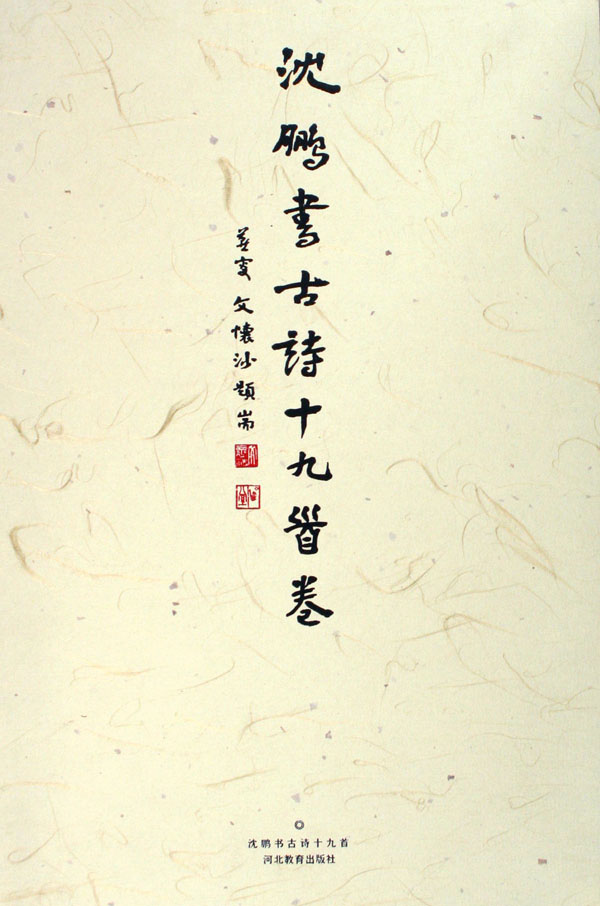 沈鹏書古詩十九首卷
燕叟文懷沙題耑
沈鹏书古诗十九首
河北教育出版社